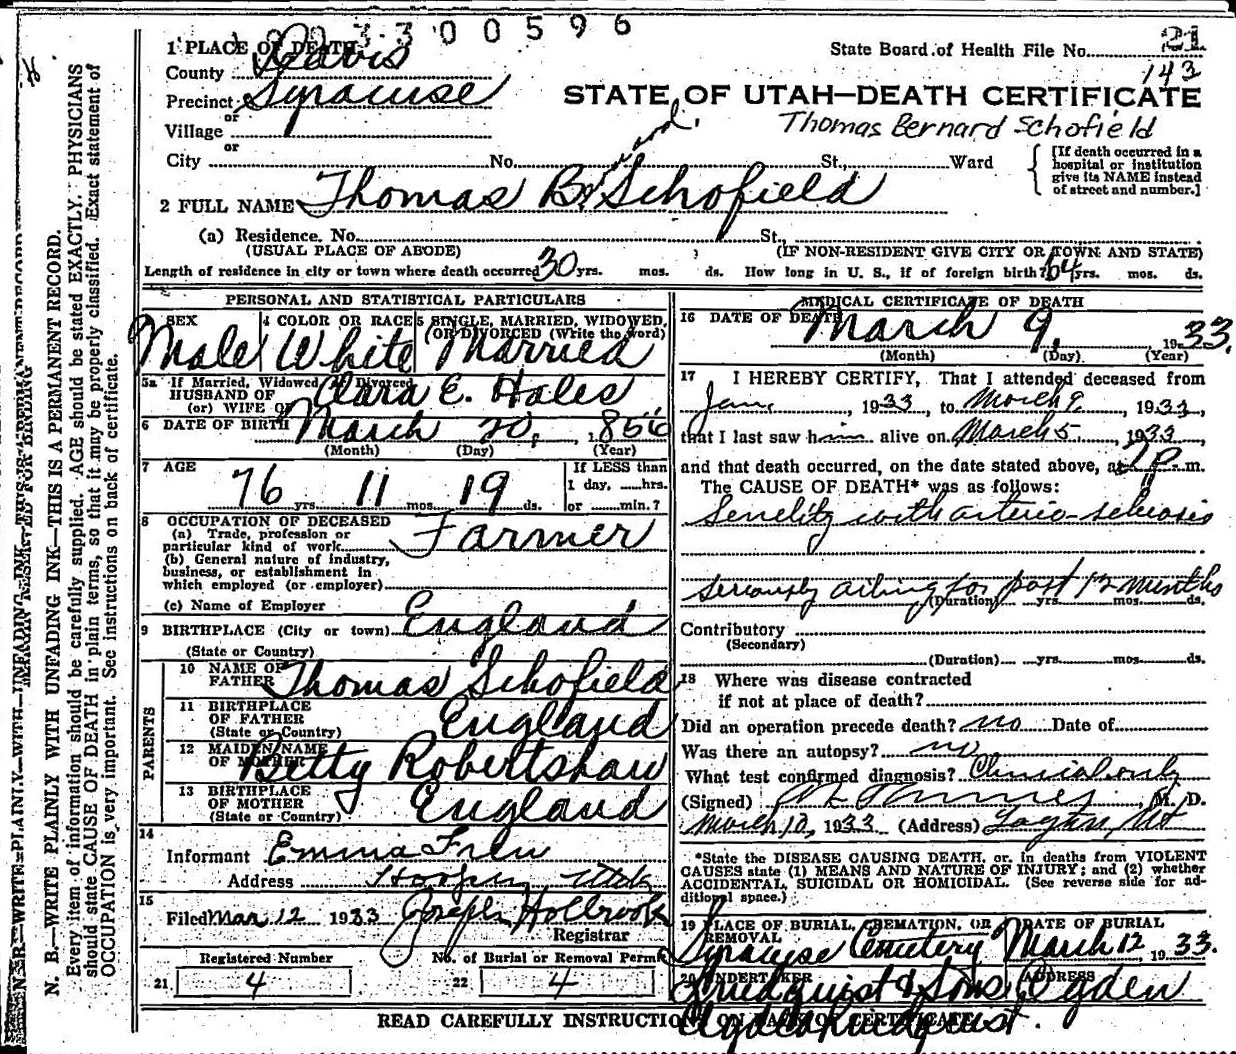 3300596
1 PLACE OF DEATH
State Board of Health File No. 21
County Davis
143
Precinct Syracuse
STATE OF UTAH—DEATH CERTIFICATE
or
Village
Thomas Bernard Schofield
or
City No. St., Ward
[If death occurred in a hospital or institution give its NAME instead of street and number.]
2 FULL NAME Thomas B. Schofield
(a) Residence. No. St.
(USUAL PLACE OF ABODE) (IF NON-RESIDENT GIVE CITY OR TOWN AND STATE)
Length of residence in city or town where death occurred 30 yrs. mos. ds. How long in U. S., if of foreign birth? 64 yrs. mos. ds.
PERSONAL AND STATISTICAL PARTICULARS
SEX 4 COLOR OR RACE 5 SINGLE, MARRIED, WIDOWED, OR DIVORCED (Write the word)
Male White Married
5a If Married, Widowed or Divorced
HUSBAND OF
(or) WIFE OF
Clara E. Hales
6 DATE OF BIRTH March 20, 1856
(Month) (Day) (Year)
7 AGE
76 yrs. 11 mos. 19 ds.
If LESS than
1 day, hrs.
or min.?
8 OCCUPATION OF DECEASED
(a) Trade, profession or
particular kind of work
Farmer
(b) General nature of industry,
business, or establishment in
which employed (or employer)
(c) Name of Employer
9 BIRTHPLACE (City or town) England
(State or Country)
PARENTS
10 NAME OF
FATHER
Thomas Schofield
11 BIRTHPLACE
OF FATHER
(State or Country)
England
12 MAIDEN NAME
OF MOTHER
Betty Robertshaw
13 BIRTHPLACE
OF MOTHER
(State or Country)
England
14
Informant Emma Frew
Address Hooper, Utah
15
Filed Mar 12 1933 Joseph Holbrook
Registrar
Registered Number No. of Burial or Removal Permit
21 4 22 4
MEDICAL CERTIFICATE OF DEATH
16 DATE OF DEATH March 9, 1933.
(Month) (Day) (Year)
17 I HEREBY CERTIFY, That I attended deceased from
Jan., 1933, to March 9, 1933,
that I last saw him alive on March 5, 1933
and that death occurred, on the date stated above, at 7 p.m.
The CAUSE OF DEATH* was as follows:
Senelity with arterio-sclerosis
seriously ailing for past 12 months
(Duration) yrs. mos. ds.
Contributory
(Secondary)
(Duration) yrs. mos. ds.
18 Where was disease contracted
if not at place of death?
Did an operation precede death? no Date of
Was there an autopsy? no
What test confirmed diagnosis? Clinical only
(Signed) M. D.
March 10, 1933 (Address) Layton, Ut
*State the DISEASE CAUSING DEATH, or, in deaths from VIOLENT
CAUSES state (1) MEANS AND NATURE OF INJURY; and (2) whether
ACCIDENTAL, SUICIDAL OR HOMICIDAL. (See reverse side for ad-
ditional space.)
19 PLACE OF BURIAL, CREMATION, OR REMOVAL DATE OF BURIAL
Syracuse Cemetery March 12, 1933.
20 UNDERTAKER ADDRESS
Lindquist & Sons, Ogden
READ CAREFULLY INSTRUCTIONS ON BACK OF CERTIFICATE
N. B.—WRITE PLAINLY WITH UNFADING INK—THIS IS A PERMANENT RECORD.
Every item of information should be carefully supplied. AGE should be stated EXACTLY. PHYSICIANS
should state CAUSE OF DEATH in plain terms, so that it may be properly classified. Exact statement of
OCCUPATION is very important. See instructions on back of certificate.